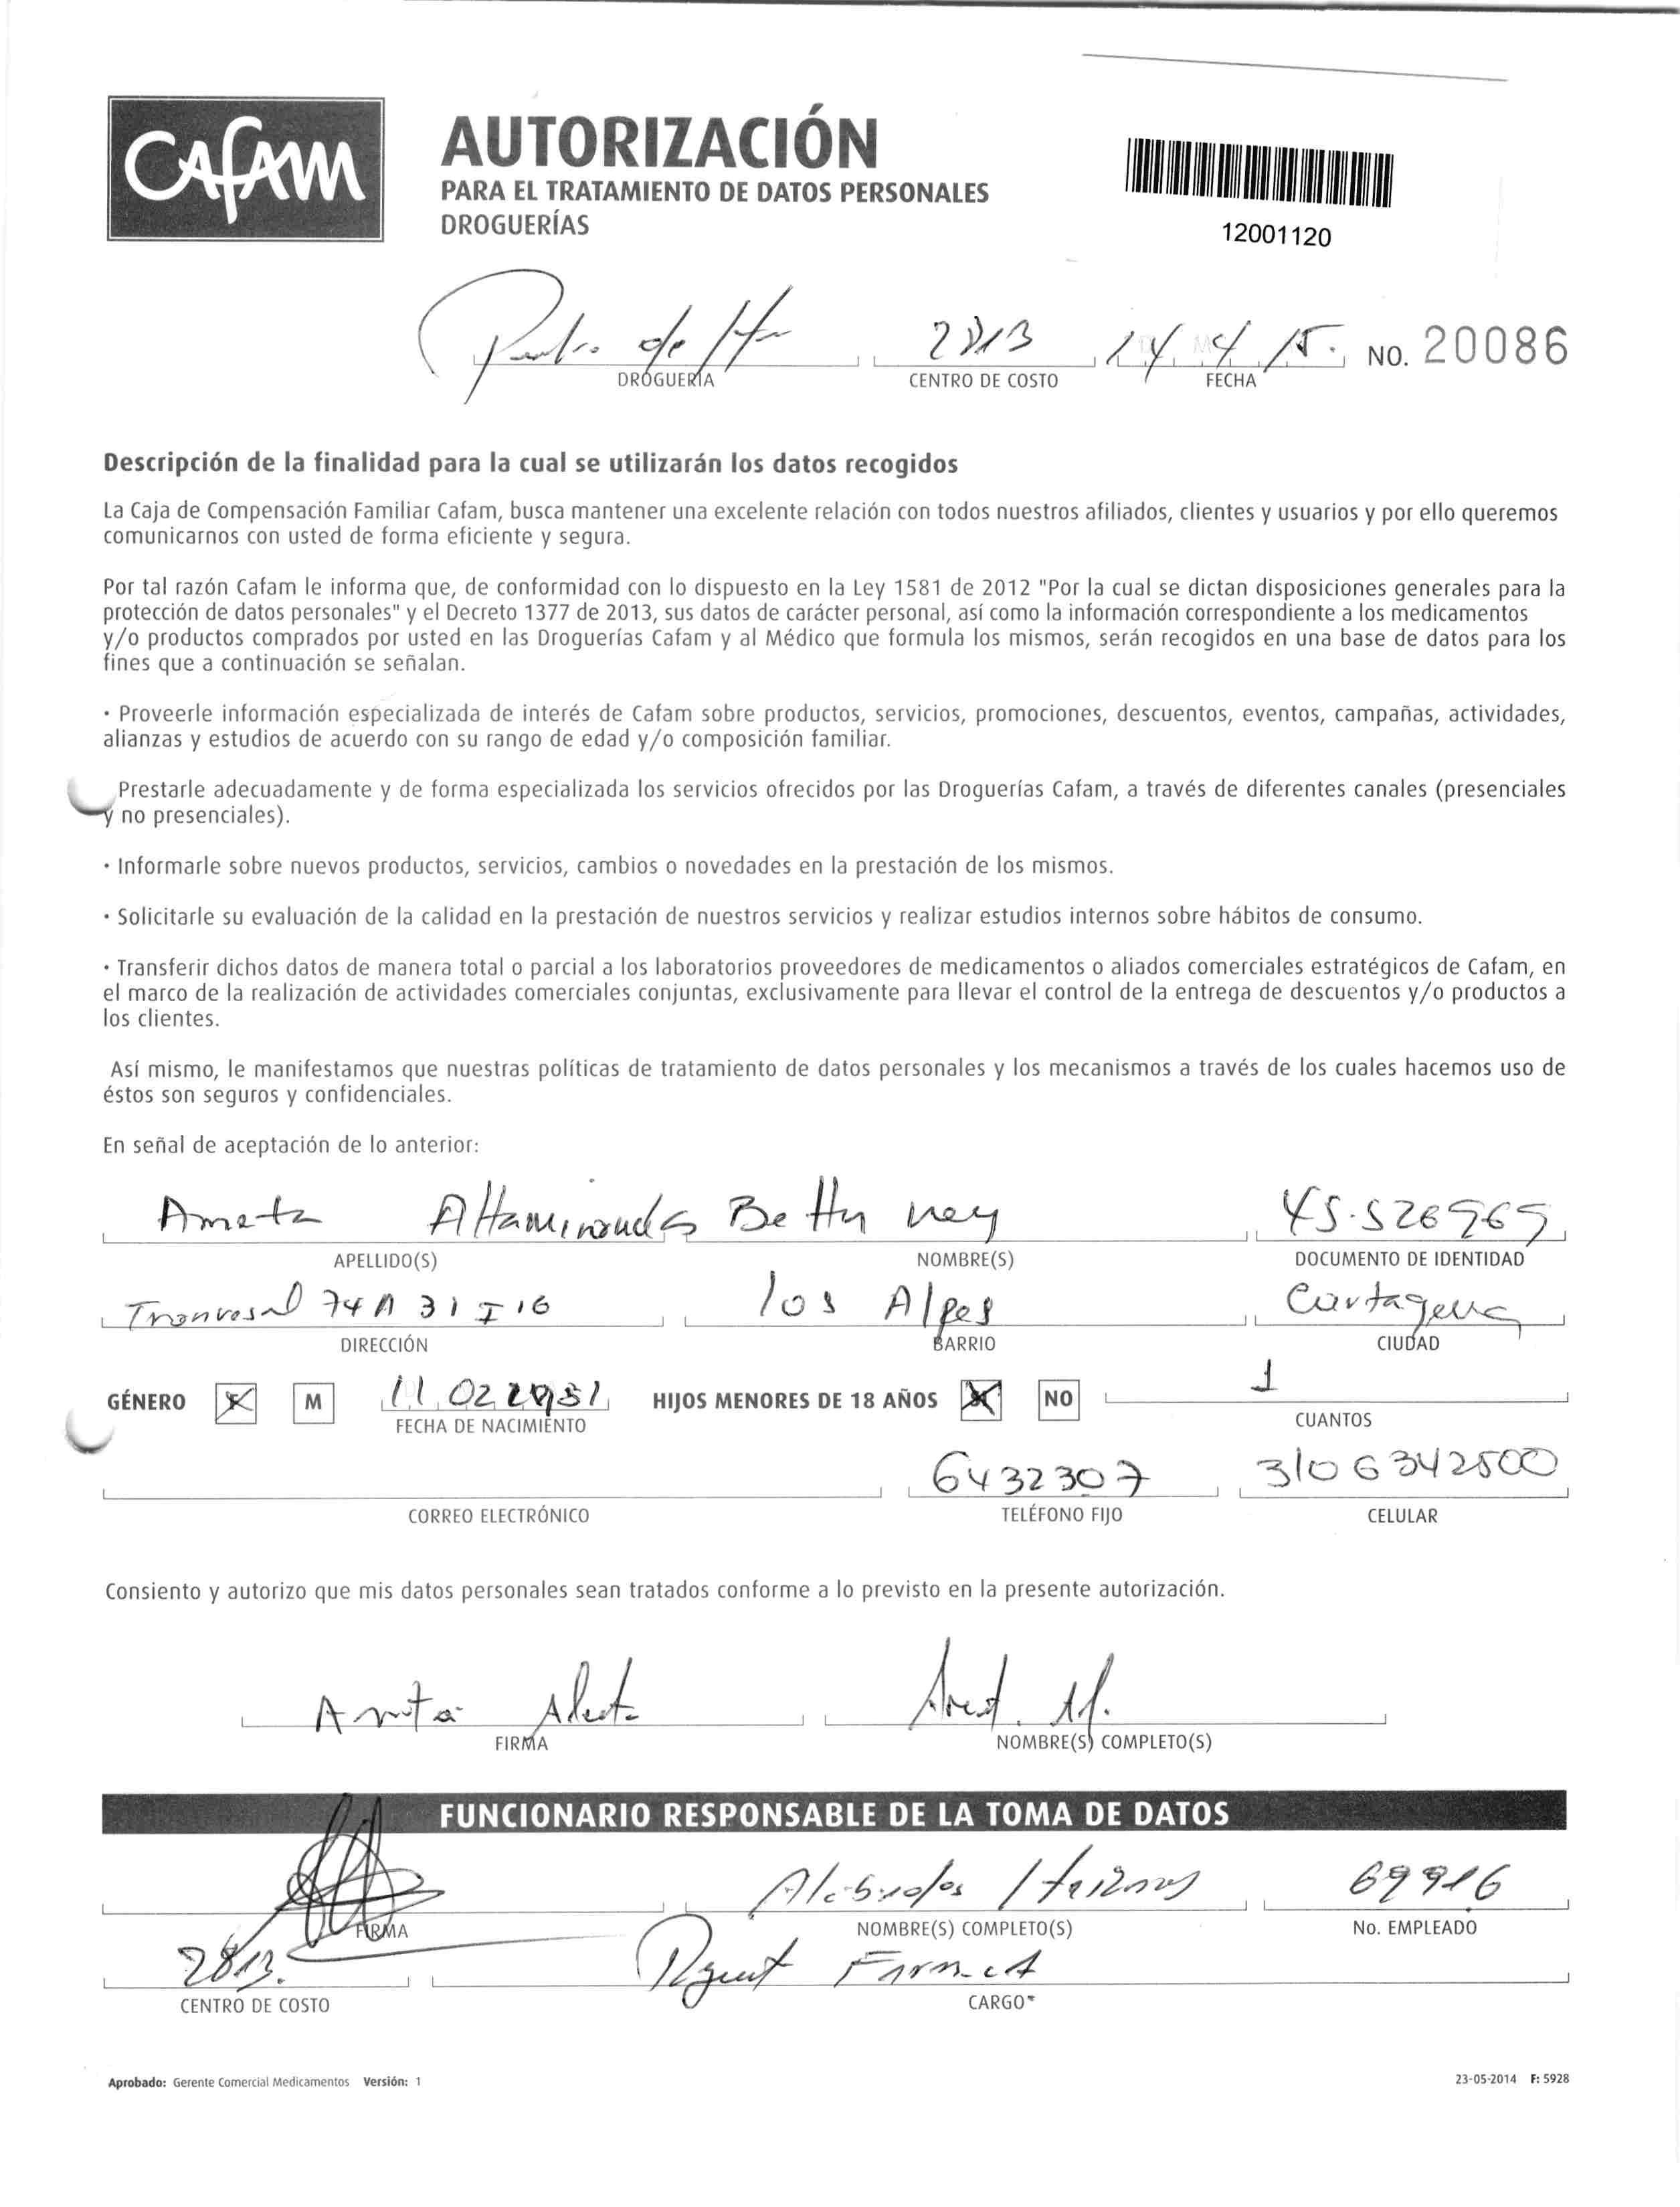 CAFAM
AUTORIZACIÓN
PARA EL TRATAMIENTO DE DATOS PERSONALES
DROGUERÍAS
12001120
Pedro de 2813 14 4 15. NO. 20086
DROGUERÍA CENTRO DE COSTO FECHA
Descripción de la finalidad para la cual se utilizarán los datos recogidos
La Caja de Compensación Familiar Cafam, busca mantener una excelente relación con todos nuestros afiliados, clientes y usuarios y por ello queremos
comunicarnos con usted de forma eficiente y segura.
Por tal razón Cafam le informa que, de conformidad con lo dispuesto en la Ley 1581 de 2012 "Por la cual se dictan disposiciones generales para la
protección de datos personales" y el Decreto 1377 de 2013, sus datos de carácter personal, así como la información correspondiente a los medicamentos
y/o productos comprados por usted en las Droguerías Cafam y al Médico que formula los mismos, serán recogidos en una base de datos para los
fines que a continuación se señalan.
· Proveerle información especializada de interés de Cafam sobre productos, servicios, promociones, descuentos, eventos, campañas, actividades,
alianzas y estudios de acuerdo con su rango de edad y/o composición familiar.
Prestarle adecuadamente y de forma especializada los servicios ofrecidos por las Droguerías Cafam, a través de diferentes canales (presenciales
y no presenciales).
· Informarle sobre nuevos productos, servicios, cambios o novedades en la prestación de los mismos.
· Solicitarle su evaluación de la calidad en la prestación de nuestros servicios y realizar estudios internos sobre hábitos de consumo.
· Transferir dichos datos de manera total o parcial a los laboratorios proveedores de medicamentos o aliados comerciales estratégicos de Cafam, en
el marco de la realización de actividades comerciales conjuntas, exclusivamente para llevar el control de la entrega de descuentos y/o productos a
los clientes.
Así mismo, le manifestamos que nuestras políticas de tratamiento de datos personales y los mecanismos a través de los cuales hacemos uso de
éstos son seguros y confidenciales.
En señal de aceptación de lo anterior:
Ameta Altamiranda Betty ney 45.526965
APELLIDO(S) NOMBRE(S) DOCUMENTO DE IDENTIDAD
74 A 31 I 16 los Alpes Cartagena
DIRECCIÓN BARRIO CIUDAD
GÉNERO F M 11 02 1981 HIJOS MENORES DE 18 AÑOS NO 1
FECHA DE NACIMIENTO CUANTOS
6432307 3106342500
CORREO ELECTRÓNICO TELÉFONO FIJO CELULAR
Consiento y autorizo que mis datos personales sean tratados conforme a lo previsto en la presente autorización.
FIRMA NOMBRE(S) COMPLETO(S)
FUNCIONARIO RESPONSABLE DE LA TOMA DE DATOS
69916
FIRMA NOMBRE(S) COMPLETO(S) No. EMPLEADO
2813.
CENTRO DE COSTO CARGO*
Aprobado: Gerente Comercial Medicamentos Versión: 1 23-05-2014 F: 5928